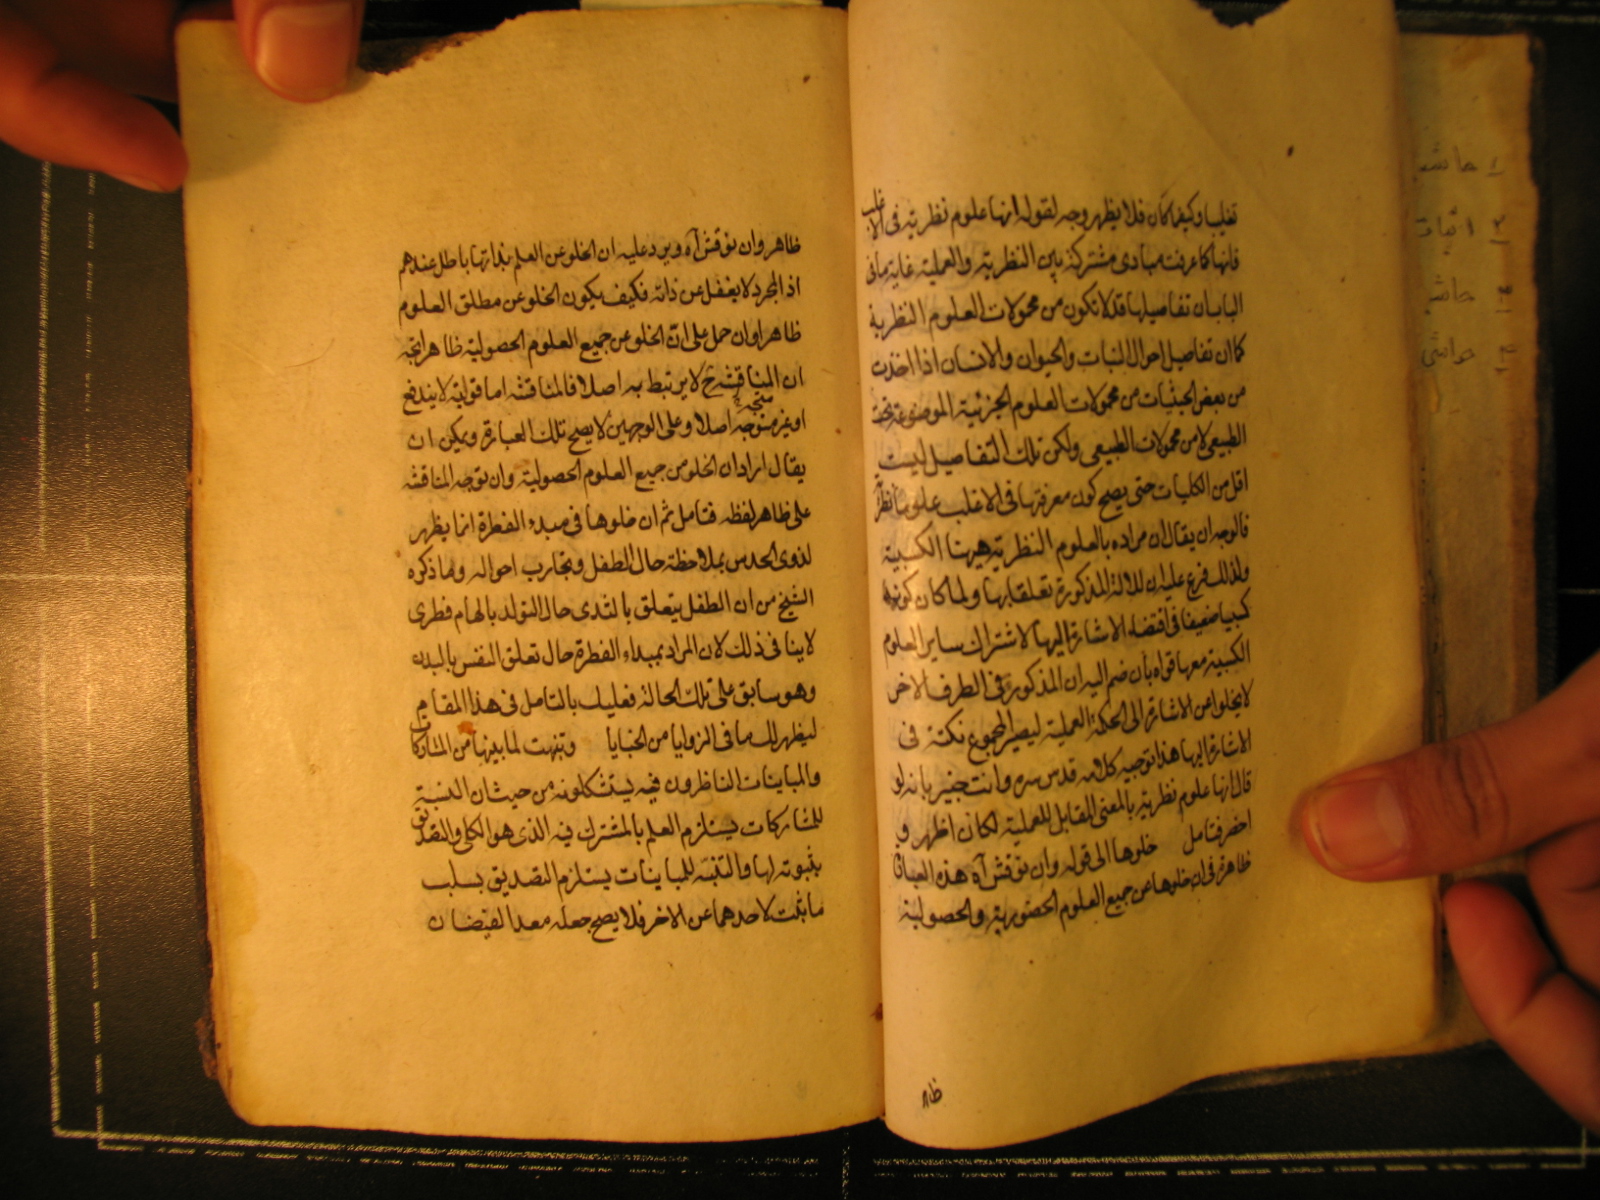 تغليبا وكيفما كان فلا يظهر وجه لقوله انها علوم نظرية فى الاغلب
فانها كما عرفت مبادى مشتركة بين النظرية والعملية غاية ما فى
الباب ان تفاصيلها قد لا تكون من محمولات العلوم النظرية
كما ان تفاصيل احوال النبات والحيوان والانسان اذا اخذت
من بعض الحيثيات من محمولات العلوم الجزئية الموضوعة تحت
الطبيعى لا من محمولات الطبيعى ولكن تلك التفاصيل ليست
اقل من الكليات حتى يصح كون معرفتها فى الاغلب علوما نظرية
فالوجه ان يقال ان مراده بالعلوم النظرية ههنا الكسبية
ولذلك فرع عليه ان للالة المذكورة تعلقا بها ولما كان كونها
كسبيا ضعيفا فى اقتضاء الاشارة اليها لاشتراك ساير العلوم
الكسبية معها قواه بأن ضم اليه ان المذكور فى الطرف الاخر
لا يخلوا من الاشارة الى الحكمة العملية ليصير المجموع نكتة فى
الاشارة اليها هذا توجيه كلامه قدس سره وانت خبير بانه لو
قال انها علوم نظرية بالمعنى المقابل للعملية لكان اظهر و
اخصر فتامل خلوها الى قوله وان نوقش آه هذه العبارة
ظاهرة فى ان خلوها عن جميع العلوم الحضورية والحصولية
ظاهر
ظاهر وان نوقش آه ويرد عليه ان الخلو عن العلم بذاتها باطل عندهم
اذ المجرد لا يغفل عن ذاته فكيف يكون الخلو عن مطلق العلوم
ظاهرا وان حمل على ان الخلو عن جميع العلوم الحصولية ظاهر اتجه
ان المناقشة ح لا يرتبط به اصلا فالمناقشة اما قوية لا يندفع
او غير متوجه اصلا وعلى الوجهين لا يصح تلك العبارة ويمكن ان
متجه
يقال اراد ان الخلو من جميع العلوم الحصولية وان توجه المناقشة
على ظاهر لفظه فتامل ثم ان خلوها فى مبدء الفطرة انما يظهر
لذوى الحدس بملاحظة حال الطفل وتجارب احواله وما ذكره
الشيخ من ان الطفل يتعلق بالثدى حال التولد بالهام فطرى
لا ينافى ذلك لان المراد بمبداء الفطرة حال تعلق النفس بالبدن
وهو سابق على تلك الحالة فعليك بالتامل فى هذا المقام
ليظهر لك ما فى الزوايا من الخبايا وتنبهت لما بينها من المشاركات
والمباينات الناظرون فيه يستشكلونه من حيث ان التنبه
للمشاركات يستلزم العلم بالمشترك فيه الذى هو الكلى والتصديق
بثبوته لها والتنبه للمباينات يستلزم التصديق بسلب
ما يثبت لاحدهما عن الاخر فلا يصح جعله معدا لفيضان
١ حاشية
٢
٣
٤ حواشى